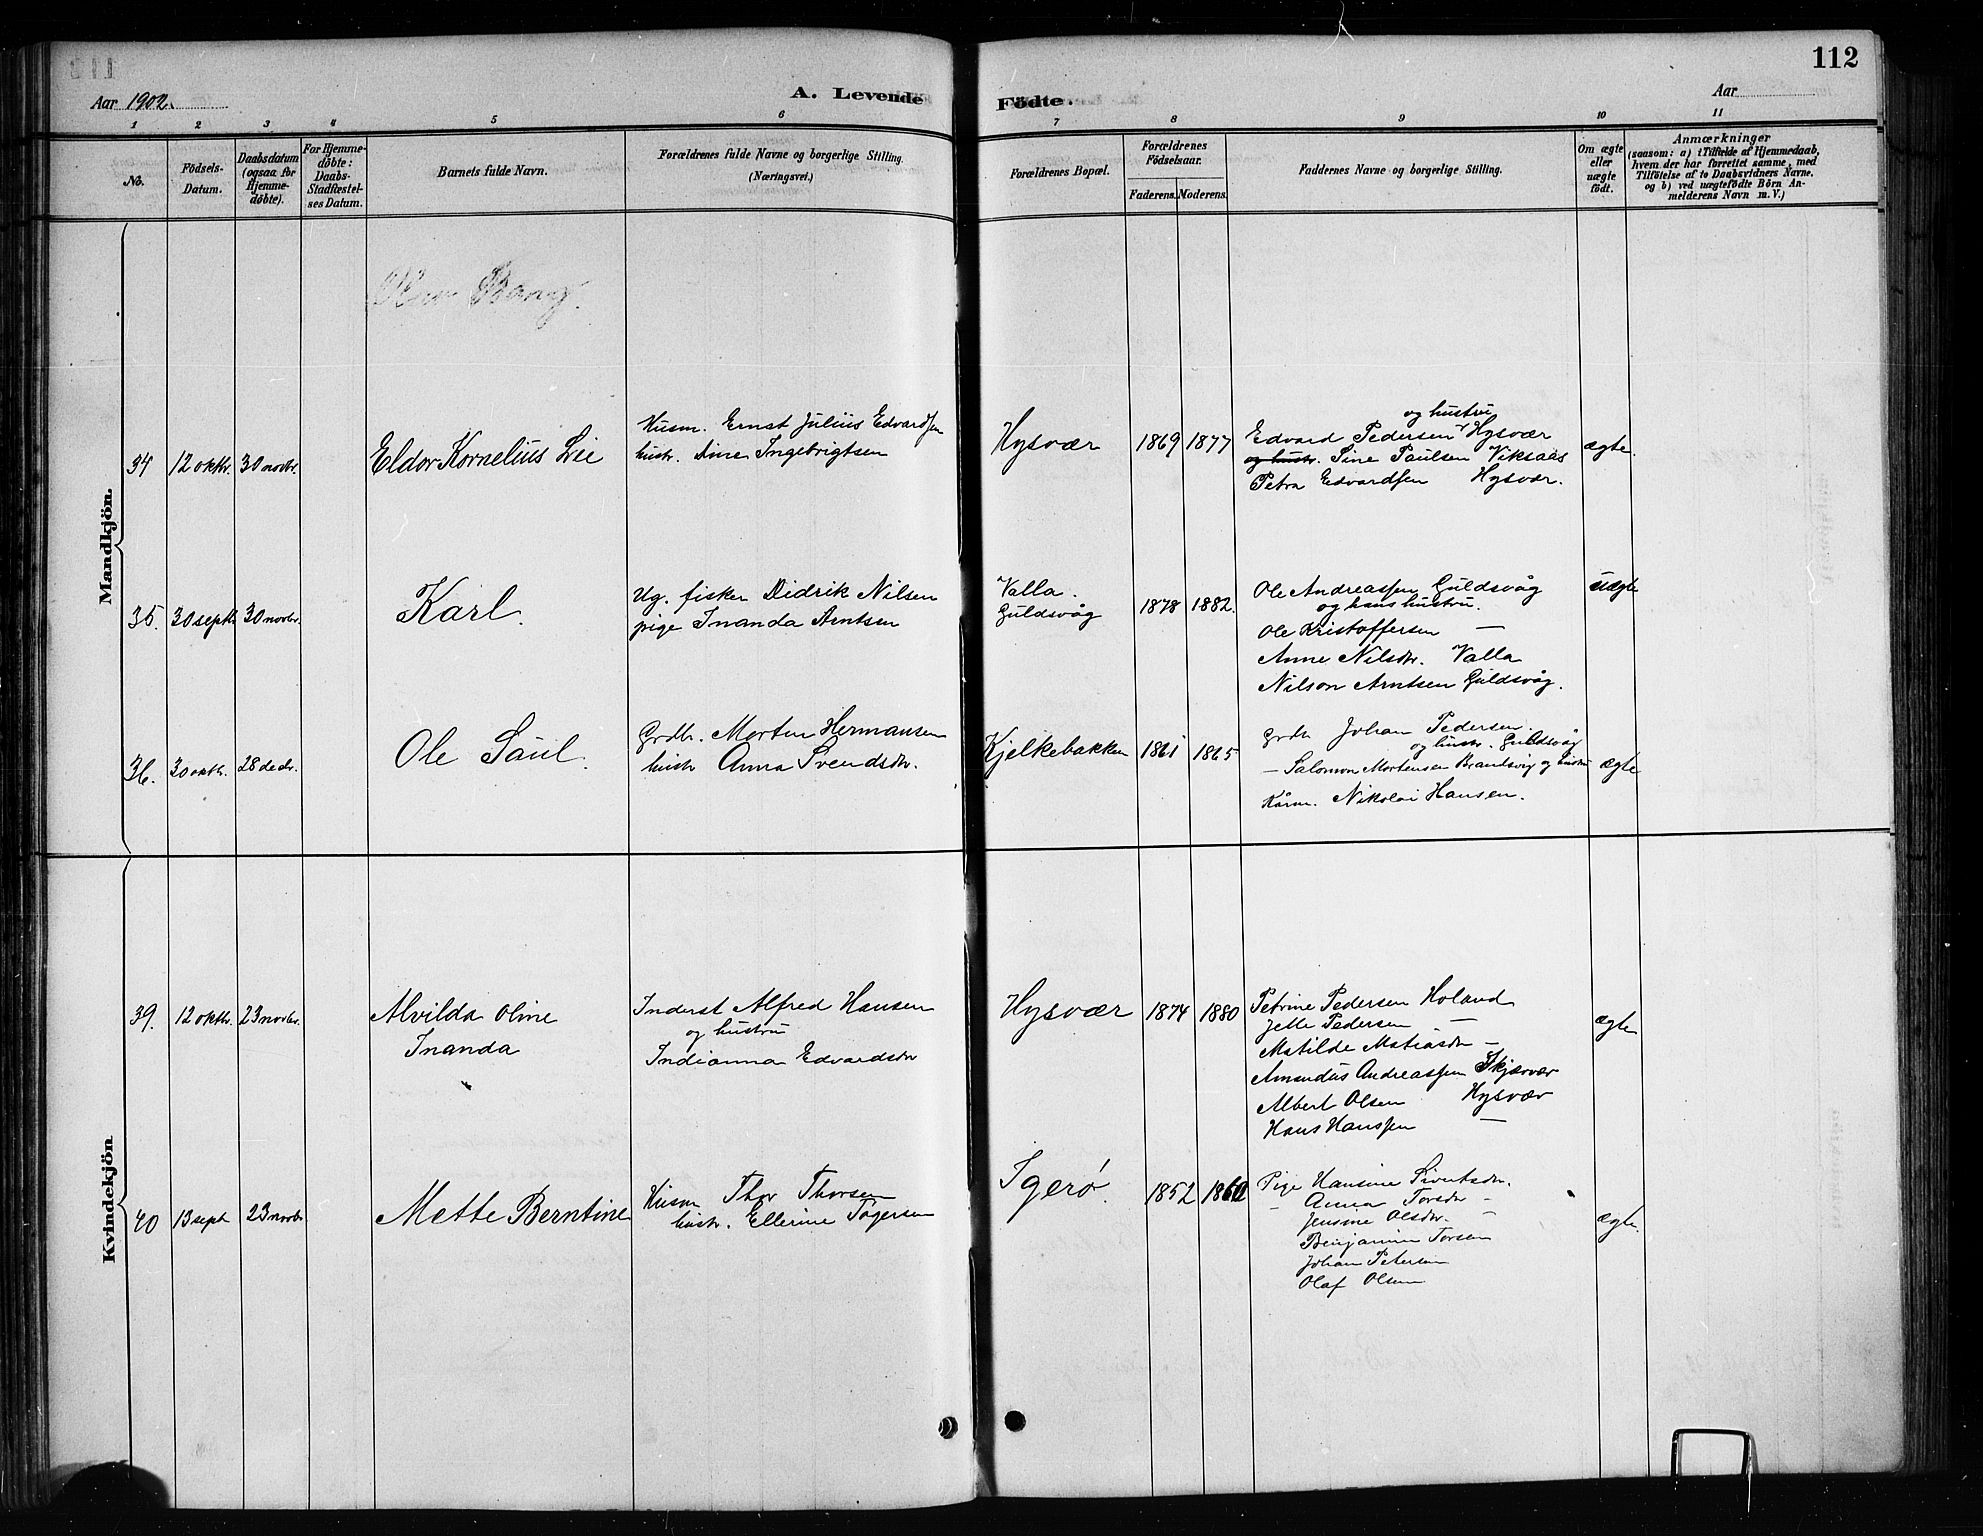 112
Aar 1902.
A. Levende Födte.
Aar
1 2 3 4 5 6 7 8 9 10 11
No.
Födsels-Datum.
Daabsdatum (ogsaa for Hjemmedöbte).
For Hjemmedöbte: Daabs-Stadfæstelses Datum.
Barnets fulde Navn.
Forældrenes fulde Navne og borgerlige Stilling. (Næringsvei.)
Forældrenes Bopæl.
Forældrenes Födselsaar.
Faderens. Moderens.
Faddernes Navne og borgerlige Stilling.
Om ægte eller uægte födt.
Anmærkninger
(saasom: a) i Tilfælde af Hjemmedaab, hvem der har forrettet samme, med Tilföielse af to Daabsvidners Navne. og b) ved uægtefödte Börn Anmelderens Navn m. V.)
Bang.
Mandkjön.
34 12 oktbr. 30 novbr. Eldor Kornelius Lie
Husm. Ernst Julius Edvardsen
hustr. Dina Ingebrigtsen
Hysvær 1869 1877
og hustru
Edvard Pedersen Hysvær
og hustr. Sine Paulsen Viksaas
Petra Edvardsen Hysvær.
ægte.
35. 30 septbr. 30 novbr. Karl.
Ug. fisker Didrik Nilsen
pige Inanda Arntsen
Valla.
Guldsvåg
1878 1882.
Ole Andreassen Guldsvåg
og hans hustru.
Ole Kristoffersen —
Anne Nilsdtr. Valla
Nilson Arntsen Guldsvåg.
uægte
36. 30 oktbr. 28 decbr. Ole Saul.
Grdbr. Morten Hermansen
hustr Anna Svendsdtr.
Kjelkebakken 1861 1865
Grdbr Johan Pedersen
og hustr. Guldsvåg
— Salomon Mortensen Brandsvig og hustru
Kårm. Nikolai Hansen.
ægte
Kvindekjön
39. 12 oktbr. 23 novbr. Alvilda Oline
Inanda
Inderst Alfred Hansen
og hustru
Indianna Edvardsdtr
Hysvær 1874 1880
Petrine Pedersen Holand
Jette Pedersen —
Matilde Matiasdtr —
Amandus Andreassen Skjærvær
Albert Olsen Hysvær
Hans Hanssen —
ægte
40 13 sept 23 novbr Mette Berntine
Husm Thor Thorsen
hustr. Ellerine Togersen
Igerø. 1852 1860
Pige Hansine Sivertsdtr.
— Anna Torsdtr —
Jensine Olsdtr. —
Benjamin Torsen
Johan Petersen
Olaf Olsen
ægte.